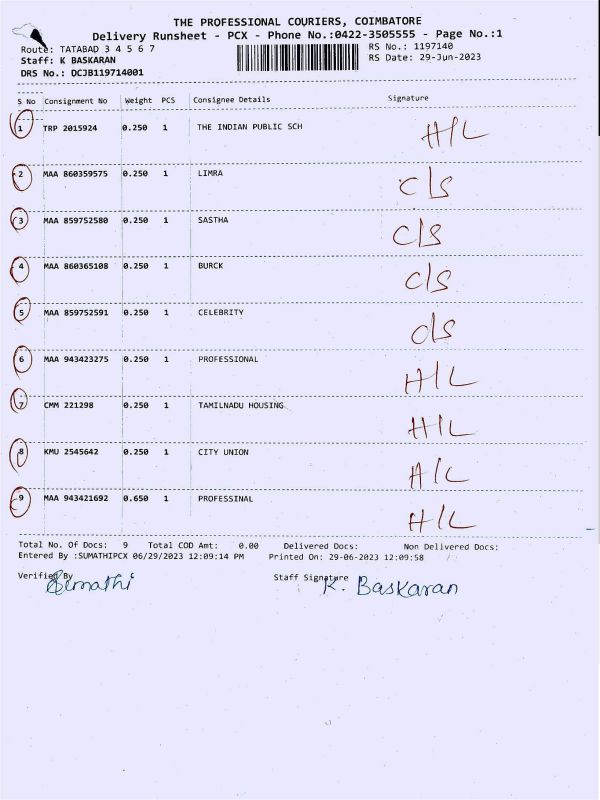 THE PROFESSIONAL COURIERS, COIMBATORE
Delivery Runsheet - PCX - Phone No.:0422-3505555 - Page No.:1
Route: TATABAD 3 4 5 6 7 RS No.: 1197140
Staff: K BASKARAN RS Date: 29-Jun-2023
DRS No.: DCJB119714001
S No Consignment No Weight PCS Consignee Details Signature
1 TRP 2015924 0.250 1 THE INDIAN PUBLIC SCH H/L
2 MAA 860359575 0.250 1 LIMRA C/S
3 MAA 859752580 0.250 1 SASTHA C/S
4 MAA 860365108 0.250 1 BURCK C/S
5 MAA 859752591 0.250 1 CELEBRITY C/S
6 MAA 943423275 0.250 1 PROFESSIONAL H/L
7 CMM 221298 0.250 1 TAMILNADU HOUSING H/L
8 KMU 2545642 0.250 1 CITY UNION H/L
9 MAA 943421692 0.650 1 PROFESSINAL H/L
Total No. Of Docs: 9 Total COD Amt: 0.00 Delivered Docs: Non Delivered Docs:
Entered By :SUMATHIPCX 06/29/2023 12:09:14 PM Printed On: 29-06-2023 12:09:58
Verified By Sumathi Staff Signature K. Baskaran